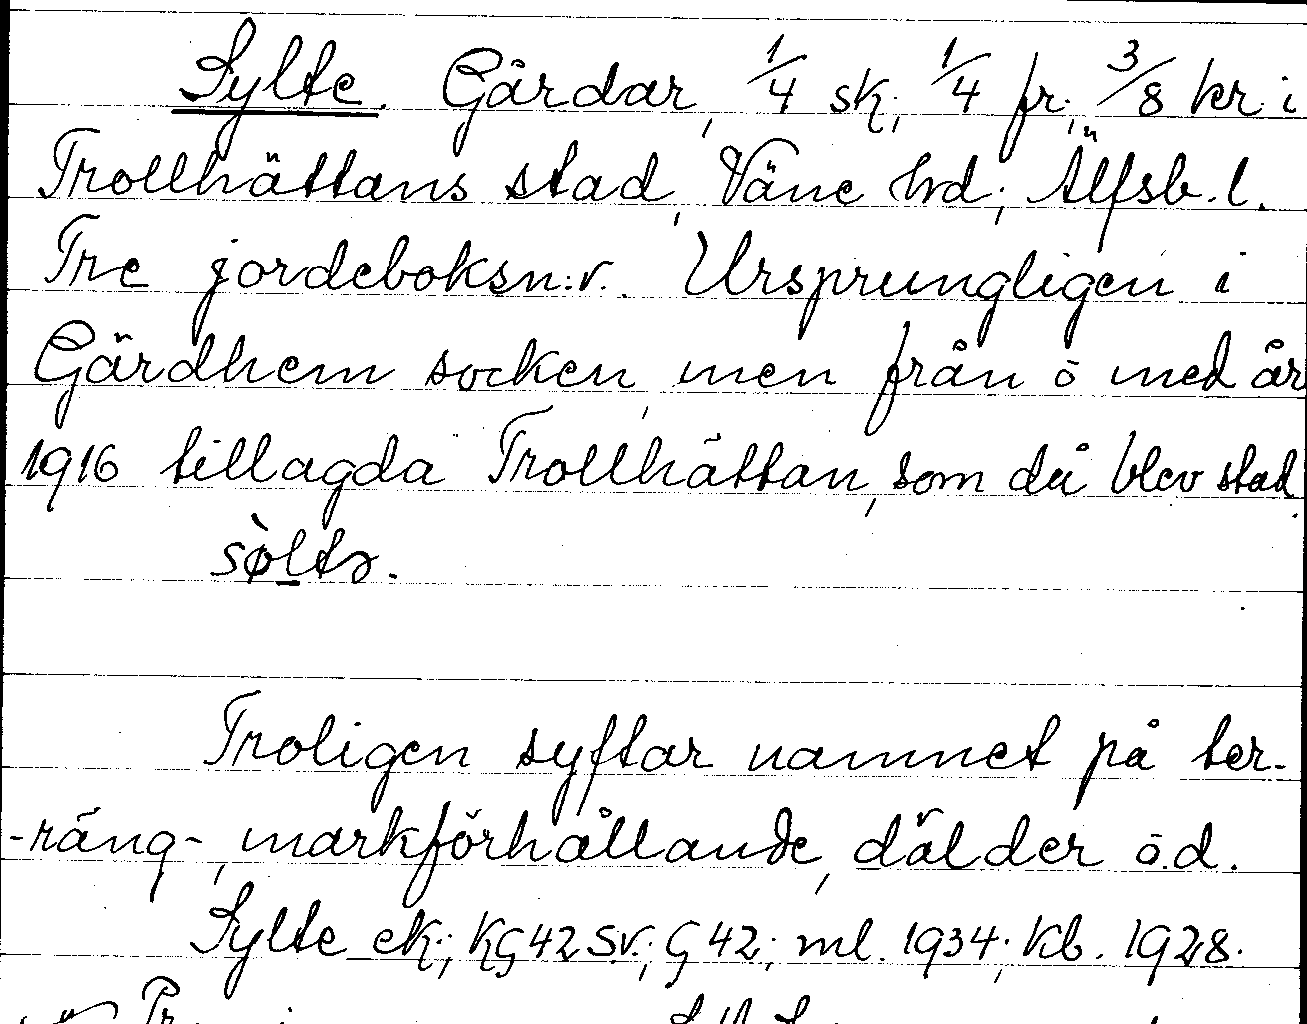 Sylte. Gårdar, 1/4 sk; 1/4 fr; 3/8 kr i
Trollhättans stad, Väne hd; Älfsb. l.
Tre jordeboksn:r. Ursprungligen i
Gärdhem socken, men från o med år
1916 tillagda Trollhättan, som då blev stad.
sø̀ltə.
Troligen syftar namnet på ter-
-räng-, markförhållande, dälder o.d.
Sylte ek; KG 42 SV; G 42; ml. 1934; kb. 1928.